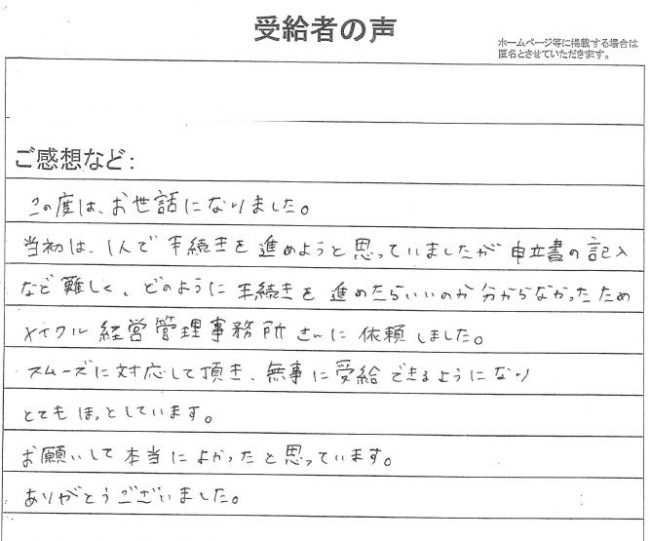 受給者の声
ホームページ等に掲載する場合は
匿名とさせていただきます。
ご感想など:
この度は、お世話になりました。
当初は、1人で手続きを進めようと思っていましたが申立書の記入
など難しく、どのように手続きを進めたらいいのか分からなかったため
メイクル経営管理事務所さんに依頼しました。
スムーズに対応して頂き、無事に受給できるようになり
とてもほっとしています。
お願いして本当によかったと思っています。
ありがとうございました。